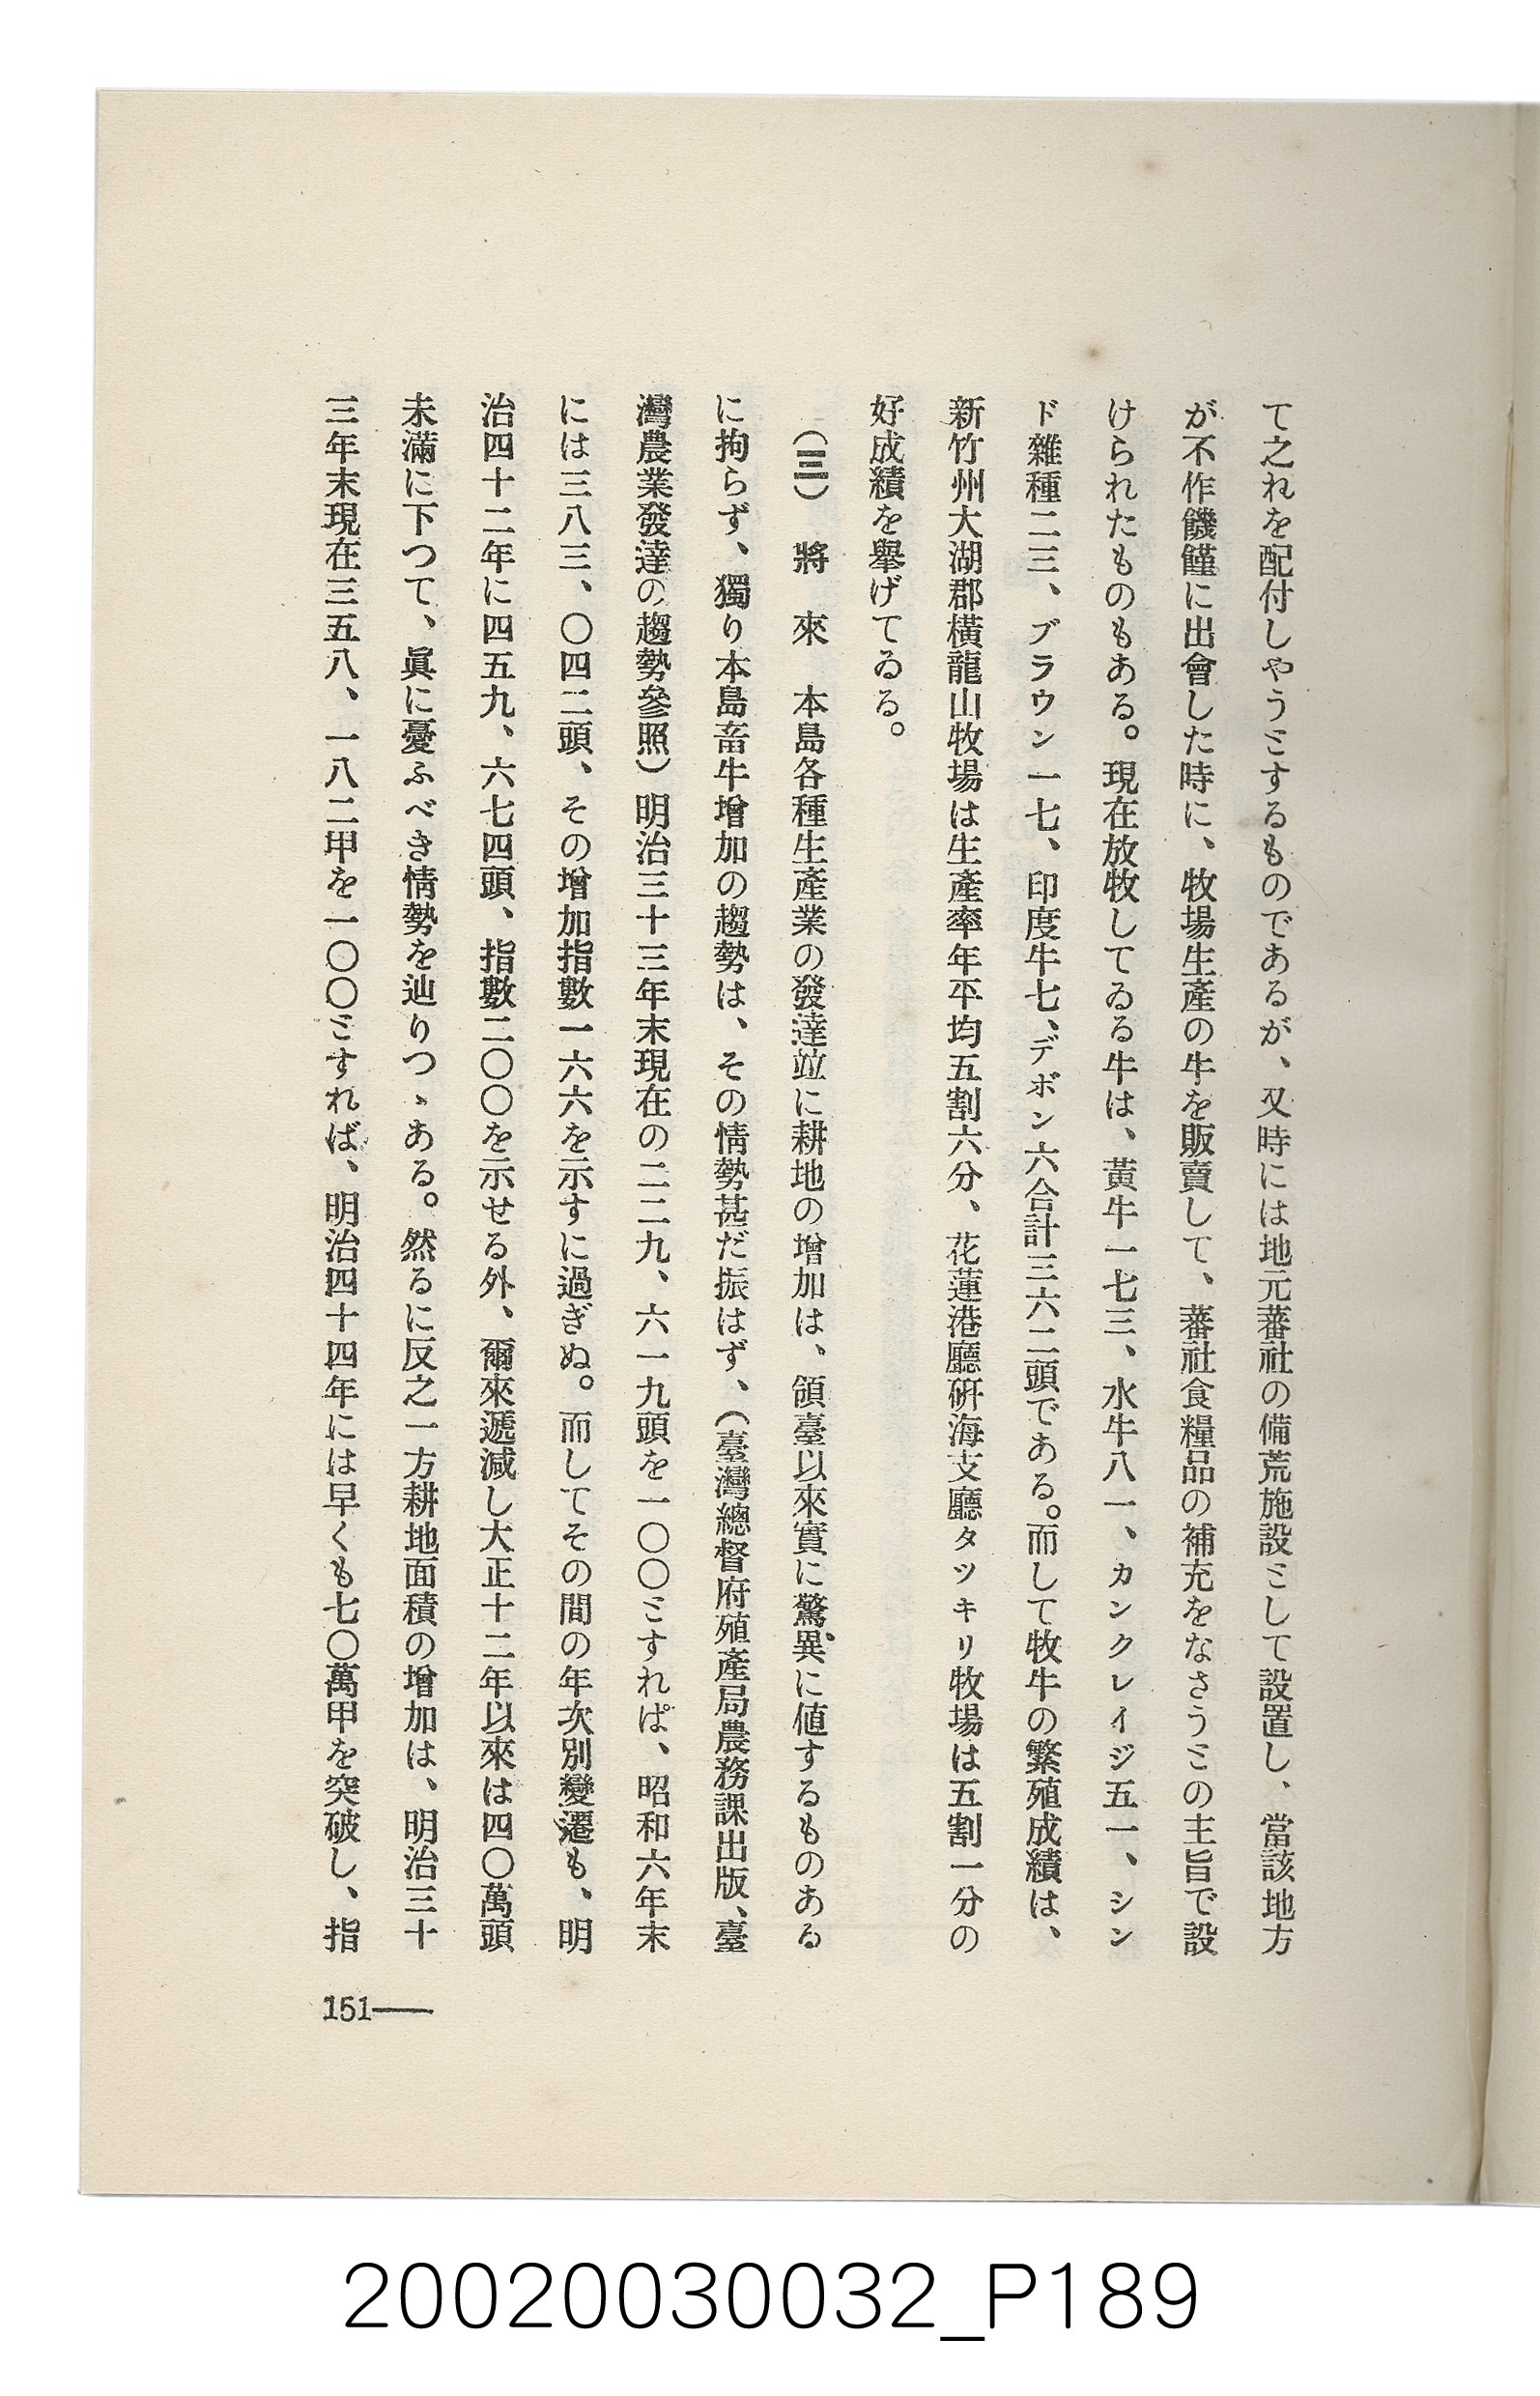 て之れを配付しやうとするものであるが、又時には地元蕃社の備荒施設として設置し、當該地方
が不作饑饉に出會した時に、牧場生產の牛を販賣して、蕃社食糧品の補充をなさうとの主旨で設
けられたものもある。現在放牧してゐる牛は、黃牛一七三、水牛八一、カンクレイジ五一、シン
ド雜種二三、ブラウン一七、印度牛七、デボン六合計三六二頭である。而して牧牛の繁殖成績は、
新竹州大湖郡橫龍山牧場は生產率年平均五割六分、花蓮港廳研海支廳タツキリ牧場は五割一分の
好成績を擧げてゐる。
(三) 將 來 本島各種生產業の發達竝に耕地の增加は、領臺以來實に驚異に値するものある
に拘らず、獨り本島畜牛增加の趨勢は、その情勢甚だ振はず、(臺灣總督府殖產局農務課出版、臺
灣農業發達の趨勢參照)明治三十三年末現在の二二九、六一九頭を一〇〇とすれば、昭和六年末
には三八三、〇四二頭、その增加指數一六六を示すに過ぎぬ。而してその間の年次別變遷も、明
治四十二年に四五九、六七四頭、指數二〇〇を示せる外、爾來遞減し大正十二年以來は四〇萬頭
未滿に下つて、眞に憂ふべき情勢を辿りつゝある。然るに反之一方耕地面積の增加は、明治三十
三年末現在三五八、一八二甲を一〇〇とすれば、明治四十四年には早くも七〇萬甲を突破し、指
151——
20020030032_P189